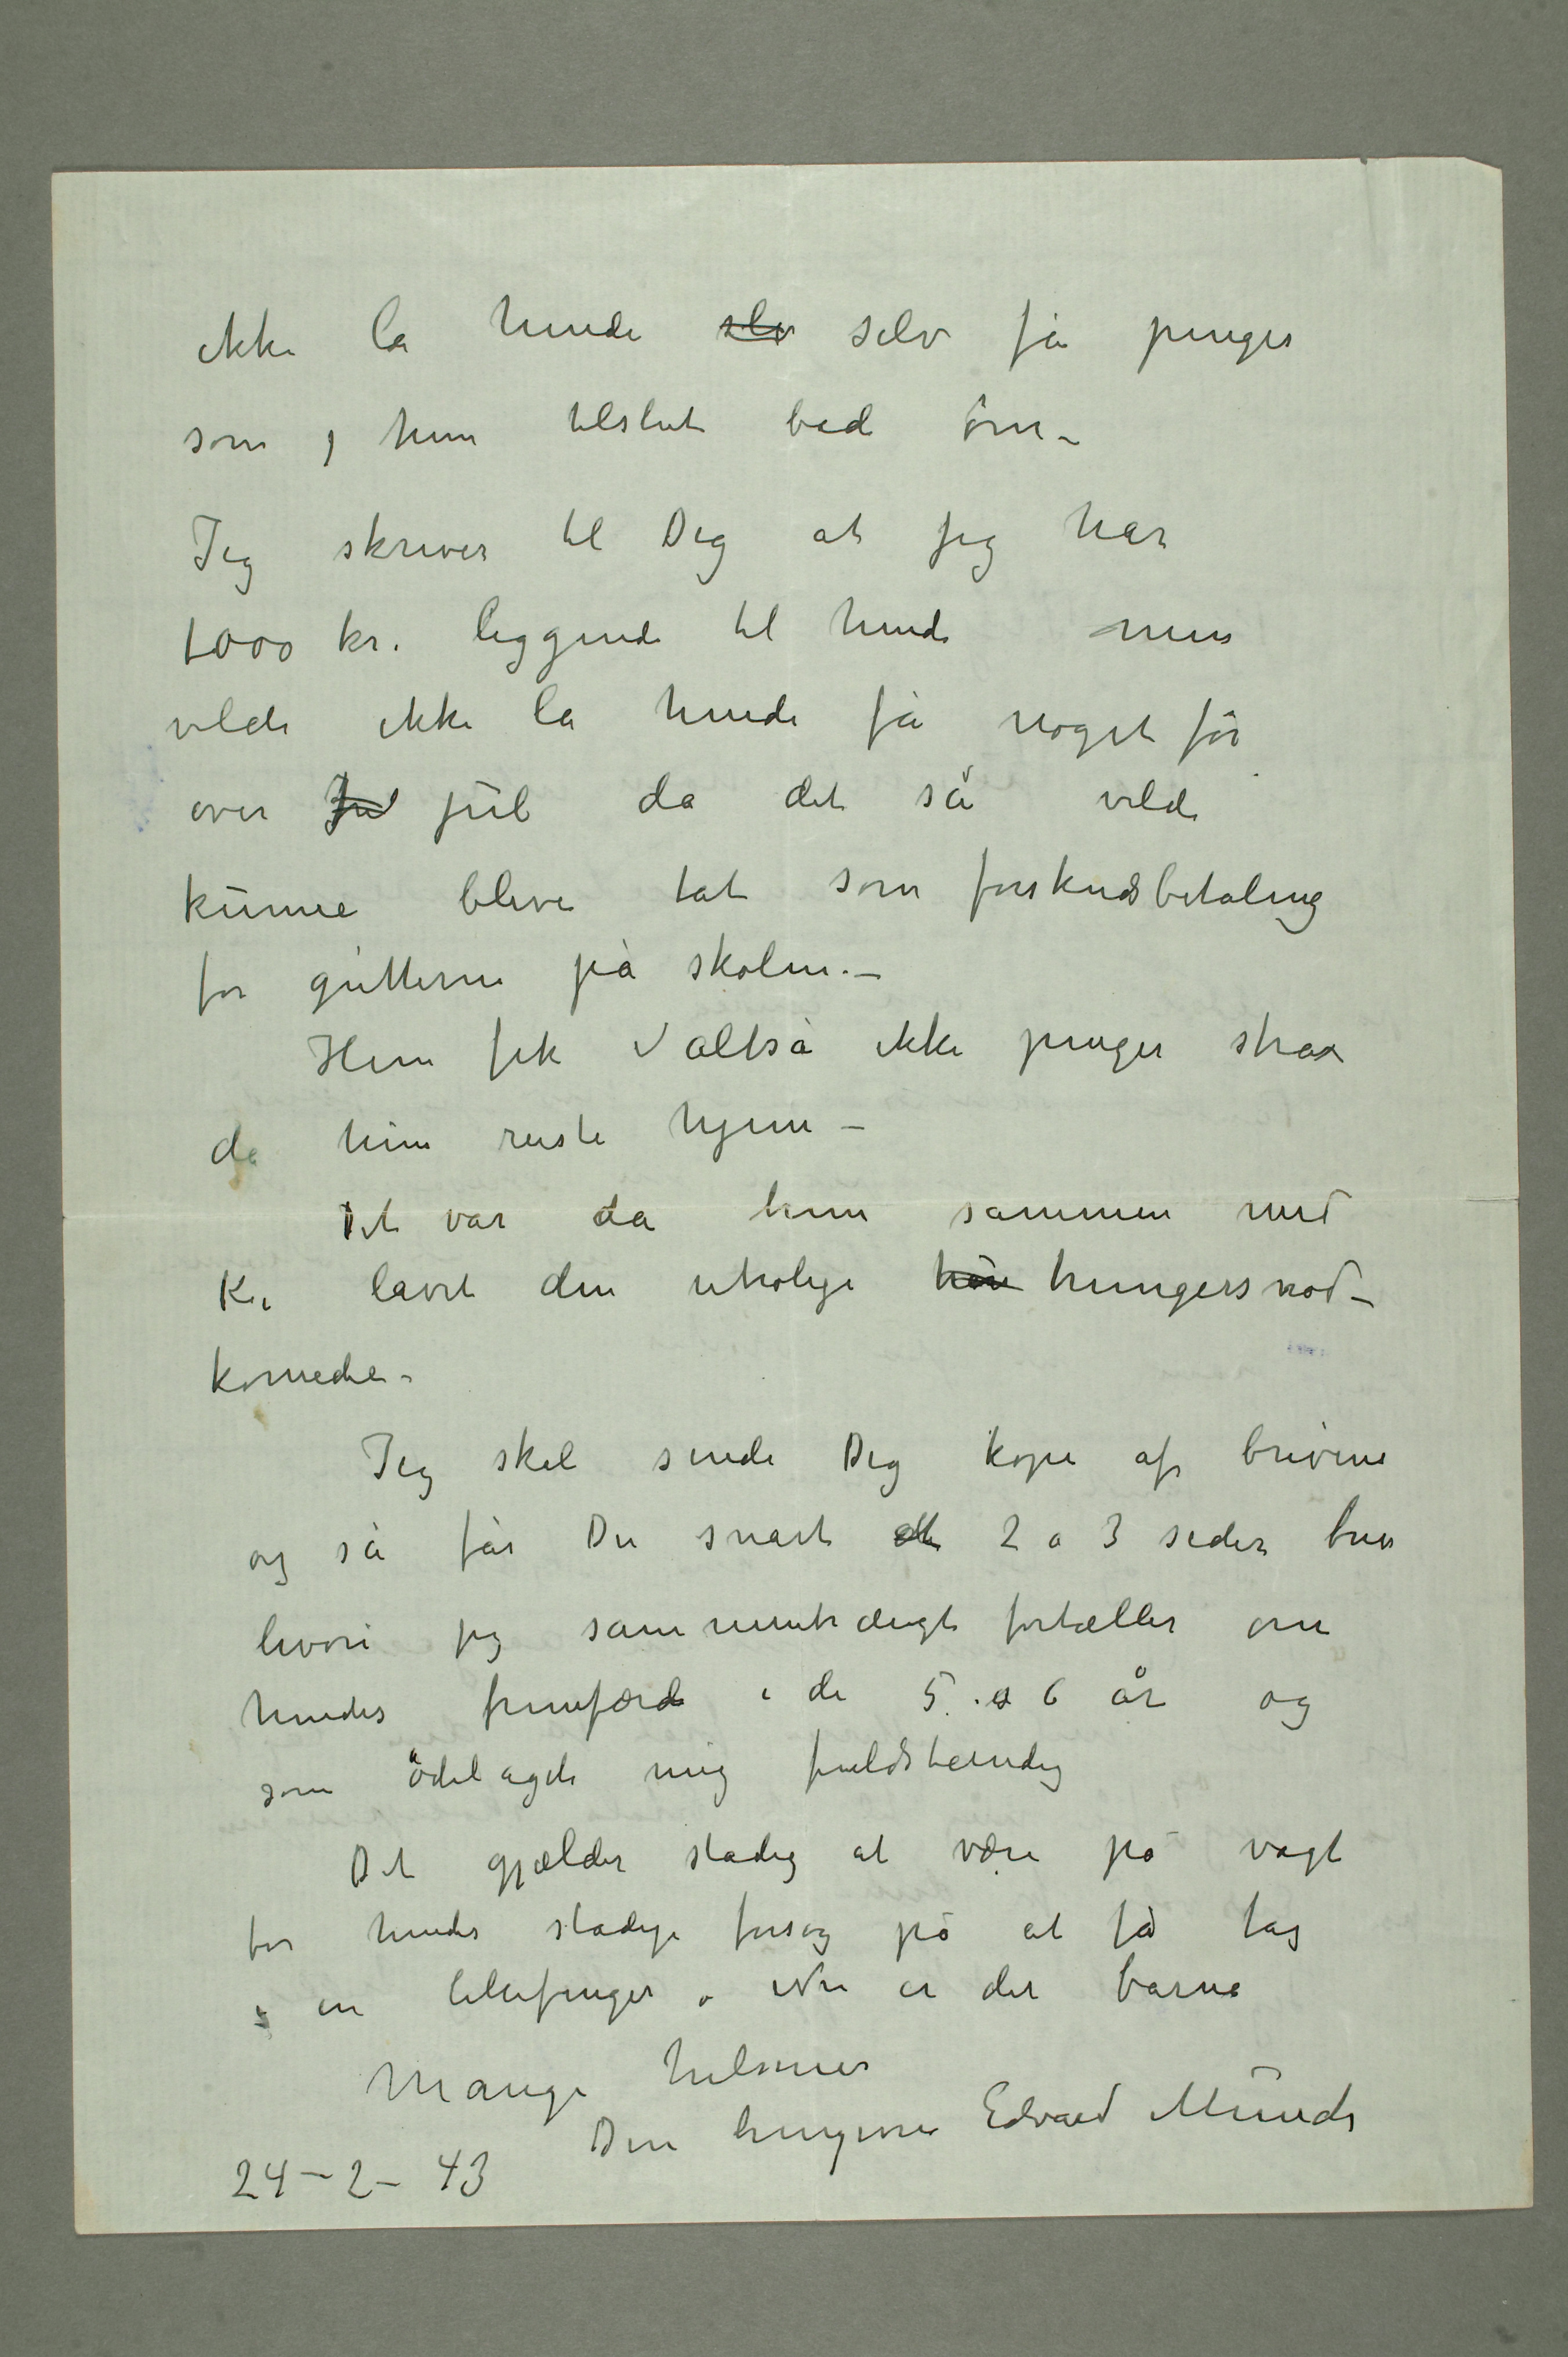 ikke la hende slv selv få penger
som j hun tilslut bad om –
Jeg skriver til Dig at jeg har
1000 kr. liggende til hende men
vilde ikke la hende få noget før
over Jul jul da det så vilde
kunne blive tat som forskudsbetaling
for gutterne på skolen. –
Hun fik altså ikke penger strax
da hun reiste hjem –
Det var da hun sammen med
Ki lavet den utrolige hungersnød-
komedie –
Jeg skal sende Dig kopi af brevene
og så får Du snart 2 a 3 sider brev
hvori jeg sammentrængt fortæller om
hendes fremfærd i de 5 a 6 år og
som ødelagde mig fuldstændig
Det gjælder stadig at være på vagt
for hendes stadige forsøg på at få tag
i en lillefinger. Nu er det barna
Mange hilsener
Din hengivne Edvard Munch
24 – 2 – 43